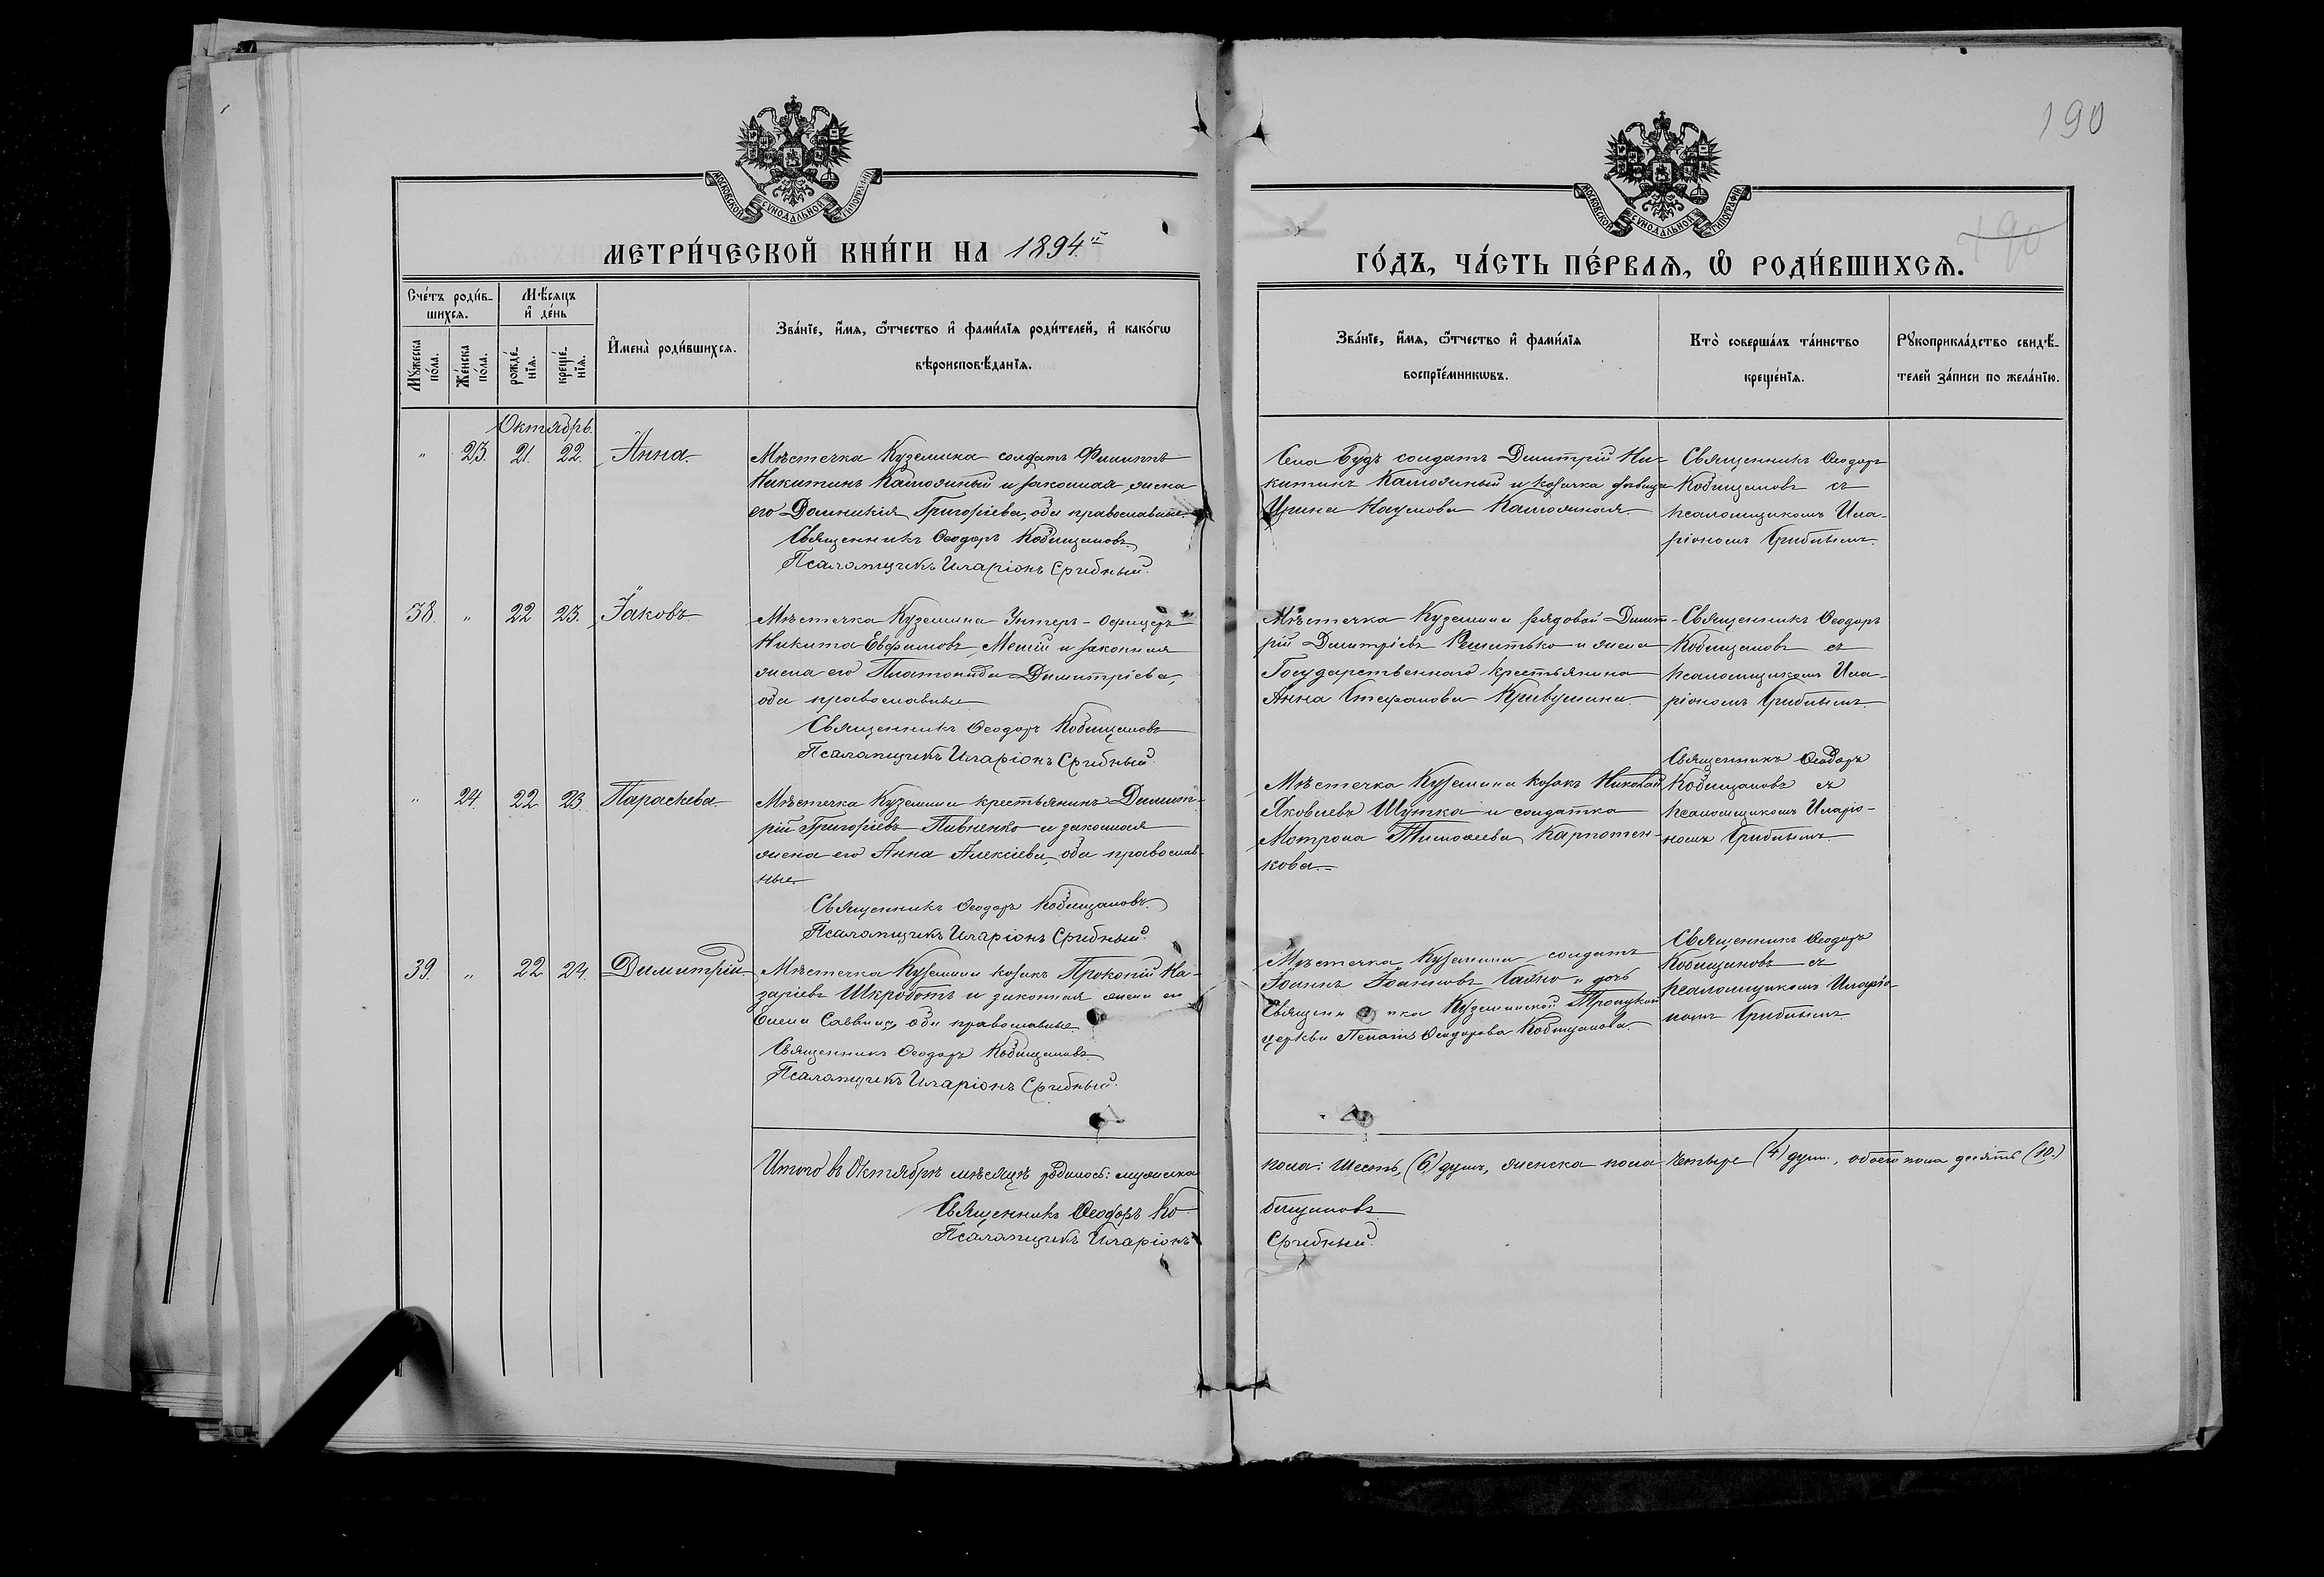 190
190
МОСКОВСКОЙ СѴНОДАЛЬНОЙ ТИПОГРАФІИ
МОСКОВСКОЙ СѴНОДАЛЬНОЙ ТИПОГРАФІИ
МЕТРИ́ЧЕСКОЙ КНИ́ГИ НА 1894й
ГО́ДЪ, ЧА́СТЬ ПЕ́РВАЯ, Ѡ҆ РОДИ́ВШИХСЯ.
Сче́тъ роди́в-
шихся.
Мѣ́сяцъ
и҆ де́нь
Мꙋ́жеска
по́ла.
Же́нска
по́ла.
рожде́-
нїя.
креще́-
нїя.
И҆мена̀ роди́вшихся.
Зва́нїе, и҆́мя, ѻ҆́тчество и҆ фами́лїя роди́телей, и҆ како́гѡ
вѣроисповѣ́данїя.
Зва́нїе, и҆́мя, ѻ҆́тчество и҆ фами́лїя
воспрїе́мникѡвъ.
Кто̀ соверша́лъ та́инство
креще́нїя.
Рꙋкоприкла́дство свидѣ́-
телей за́писи по жела́нїю.
Октябрь.
" 23. 21. 22. Анна.
Мѣстечка Куземина солдатъ Филиппъ
Никитинъ и законная жена
его Домникія Григоріева, оба православные.
Священникъ Ѳеодоръ Кобищановъ.
Псаломщикъ Иларіонъ Срибный.
Села Будъ солдатъ Димитрій Ни-
китинъ и козачка дѣвица
Ирина Наумова
Священникъ Ѳеодоръ
Кобищановъ съ
псаломщикомъ Ила-
ріономъ Срибнымъ.
38. " 22 23. Іаковъ
Мѣстечка Куземина Унтеръ-Офицеръ
Никита Евфимовъ и законная
жена его Платонида Димитріева,
оба православные
Священникъ Ѳеодоръ Кобищановъ
Псаломщикъ Иларіонъ Срибный
Мѣстечка Куземина рядовой Димит-
рій Димитріевъ Решитько и жена
Государственнаго крестьянина
Анна Стефанова Кривушина.
Священникъ Ѳеодоръ
Кобищановъ съ
псаломщикомъ Ила-
ріономъ Срибнымъ.
" 24. 22 23 Параскева
Мѣстечка Куземина крестьянинъ Димит-
рій Григоріевъ Пивненко и законная
жена его Анна Алексіева, оба православ-
ные.
Священникъ Ѳеодоръ Кобищановъ.
Псаломщикъ Иларіонъ Срибный.
Мѣстечка Куземина козакъ Николай
Яковлевъ Шутка и солдатка
Мотрона Тимоѳеева Карпотен-
кова.
Священникъ Ѳеодоръ
Кобищановъ съ
псаломщикомъ Иларіо-
номъ Срибнымъ.
39. " 22 24. Димитрій.
Мѣстечка Куземина козакъ Прокопій На-
заріевъ Шкроботъ и законная жена его
Елена Саввина, оба православные
Священникъ Ѳеодоръ Кобищановъ
Псаломщикъ Иларіонъ Срибный.
Мѣстечка Куземина солдатъ
Іоаннъ Іоанновъ и дочь
Священника Куземинской Троицкой
церкви Ѳеодорова Кобищанова.
Священникъ Ѳеодоръ
Кобищановъ съ
псаломщикомъ Иларіо-
номъ Срибнымъ.
Итого въ Октябрѣ мѣсяцѣ родилось: мужеска
пола: шесть, (6) душъ, женска пола четыре (4) душ., обоего пола десять (10.)
Священникъ Ѳеодоръ Ко-
бищановъ
Псаломщикъ Иларіонъ
Срибный.